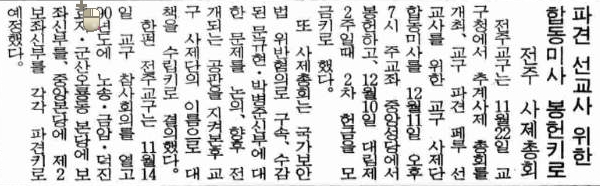 파견 선교사 위한
합동미사 봉헌키로
전주 사제총회
전주교구는 11월22일 교
구청에서 추계사제 총회를
개최, 교구 파견 페루 선
교사를 위한 교구 사제단
합동미사를 12월11일 오후
7시 주교좌 중앙성당에서
봉헌하고, 12월10일 대림제
2주일때 2차 헌금을 모
금키로 했다.
또 사제총회는 국가보안
법 위반혐의로 구속, 수감
된 문규현·박병준신부에 대
한 문제를 논의, 향후 전
개되는 공판을 지켜본후 교
구 사제단의 이름으로 대
책을 수립키로 결의했다.
한편 전주교구는 11월14
일 교구 참사회의를 열고
노송·금암·덕진
군산오룡동 본당에 보
좌신부를, 중앙본당에 제2
보좌신부를 각각 파견키로
예정했다.